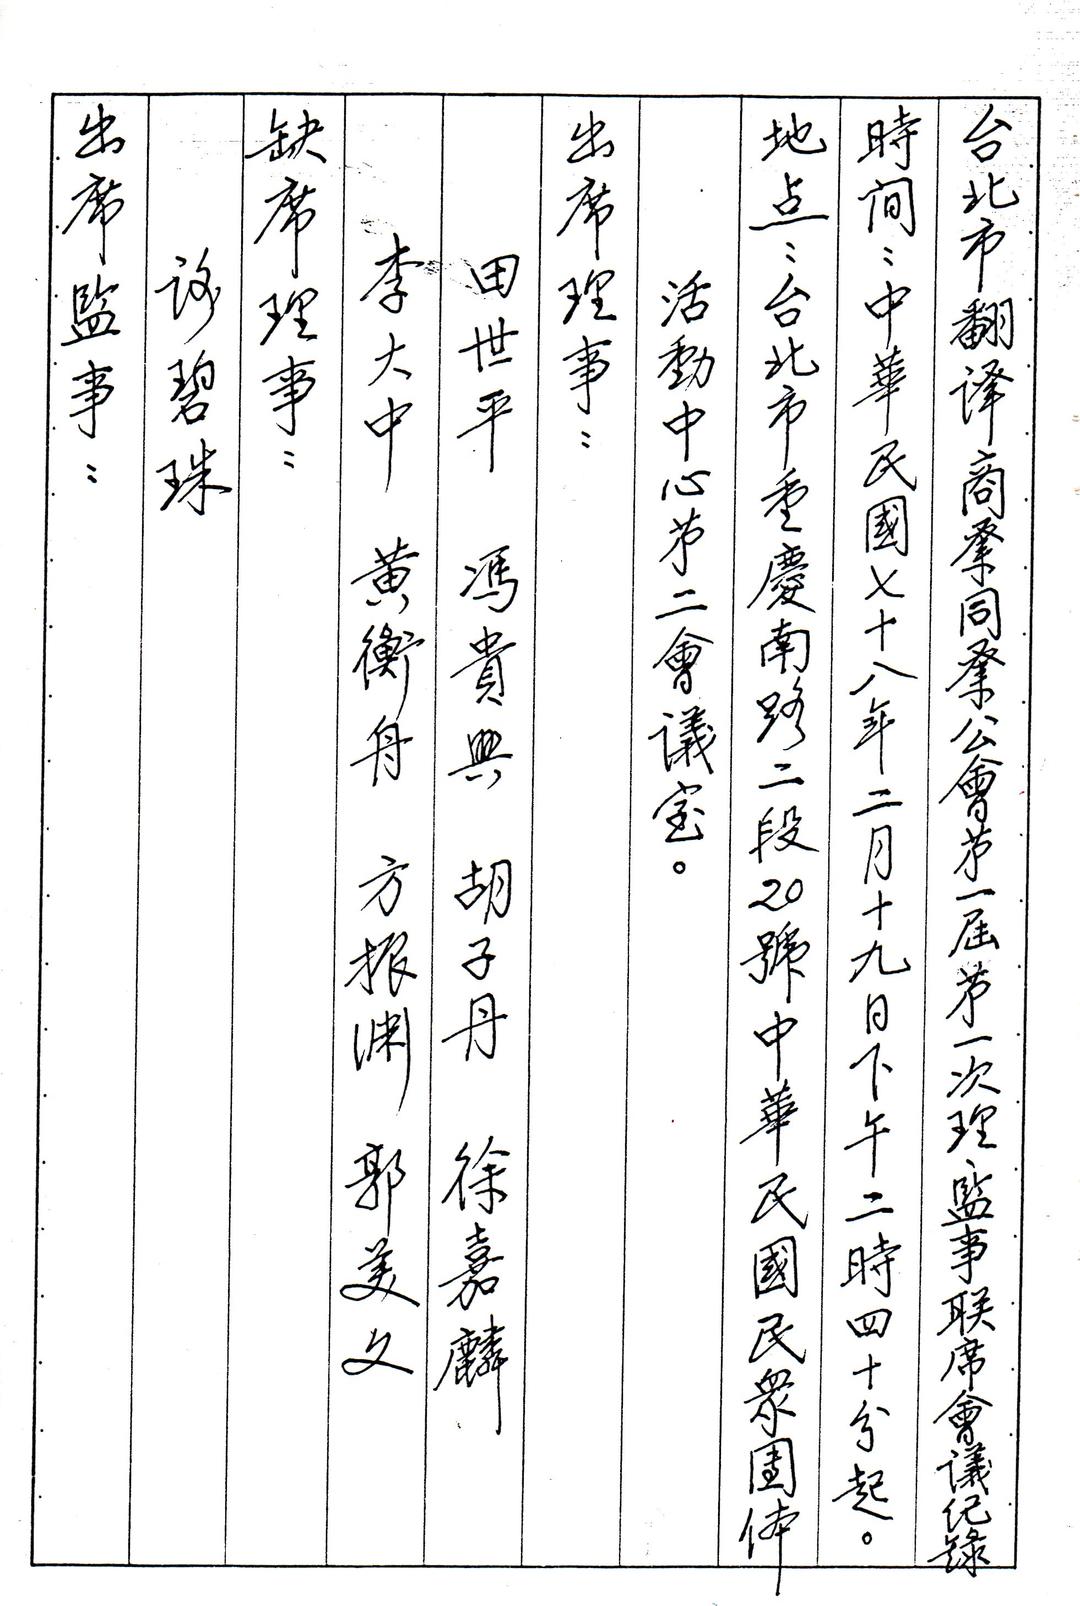 台北市翻译商業同業公會第一屆第一次理、監事联席會議纪錄
時间：中華民國七十八年二月十九日下午二時四十分起。
地点：台北市重慶南路二段20號中華民國民眾团体
活動中心第二會議室。
出席理事：
田世平 馮貴興 胡子丹 徐嘉麟
李大中 黃衡舟 方振渊 郭美文
缺席理事：
碧珠
出席監事：